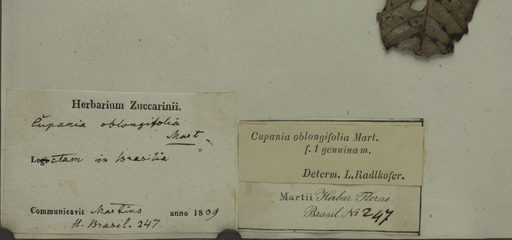 Herbarium Zuccarinii.
Cupania oblongifolia
Mart.
Lectam in Brasilia
Communicavit Martius anno 1839
H. Brasil. 247
Cupania oblongifolia Mart.
f. 1 genuina m.
Determ. L. Radlkofer.
Martii Herbar. Florae
Brasil No 247